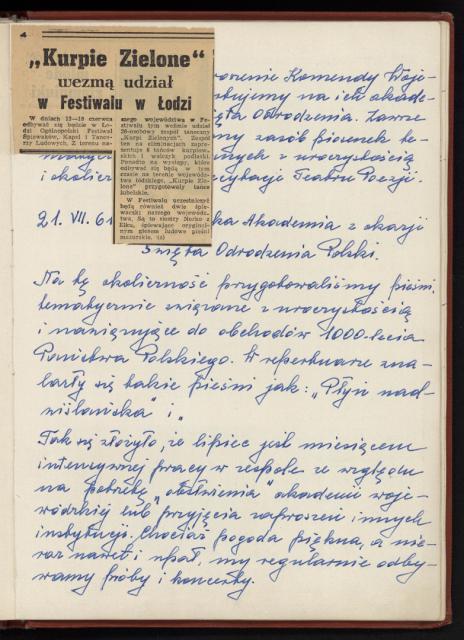 4
„Kurpie Zielone"
wezmą udział
w Festiwalu w Łodzi
W dniach 12—18 czerwca
odbywać się będzie w Ło-
dzi Ogólnopolski Festiwal
Śpiewaków, Kapel i Tance-
rzy Ludowych. Z terenu na-
szego województwa w Fe-
stiwalu tym weźmie udział
26-osobowy zespół taneczny
„Kurpi Zielonych". Zespół
ten na eliminacjach zapre-
zentuje 6 tańców kurpiow-
skich i walczyk podlaski.
Ponadto na występy, które
odbywać się będą w tym
czasie na terenie wojewódz-
twa łódzkiego, „Kurpie Zie-
lone" przygotowały tańce
lubelskie.
W Festiwalu uczestniczyć
będą również dwie śpie-
waczki naszego wojewódz-
twa. Są to siostry Nurko z
Ełku, śpiewające oryginal-
nym głosem ludowe pieśni
mazurskie.
Komendy Woje-
na ich akade-
Odrodzenia.
zasób piosenek te-
z uroczystością
i okolicz
Teatru Poezji.
21. VII. 6
Akademia z okazji
Święta Odrodzenia Polski.
Na tę okoliczność przygotowaliśmy pieśni
tematycznie związane z uroczystością
i nawiązujące do obchodów 1000-lecia
Państwa Polskiego. W repertuarze zna-
lazły się takie pieśni jak: „Płyń nad-
wiślańska" i „
Tak się złożyło, że lipiec jest miesiącem
intensywnej pracy w zespole ze względu
na potrzebę „obsłużenia" akademii woje-
wódzkiej lub przyjęcia zaproszeń innych
instytucji. Chociaż pogoda piękna, a nie-
raz nawet i upał, my regularnie odby-
wamy próby i koncerty.